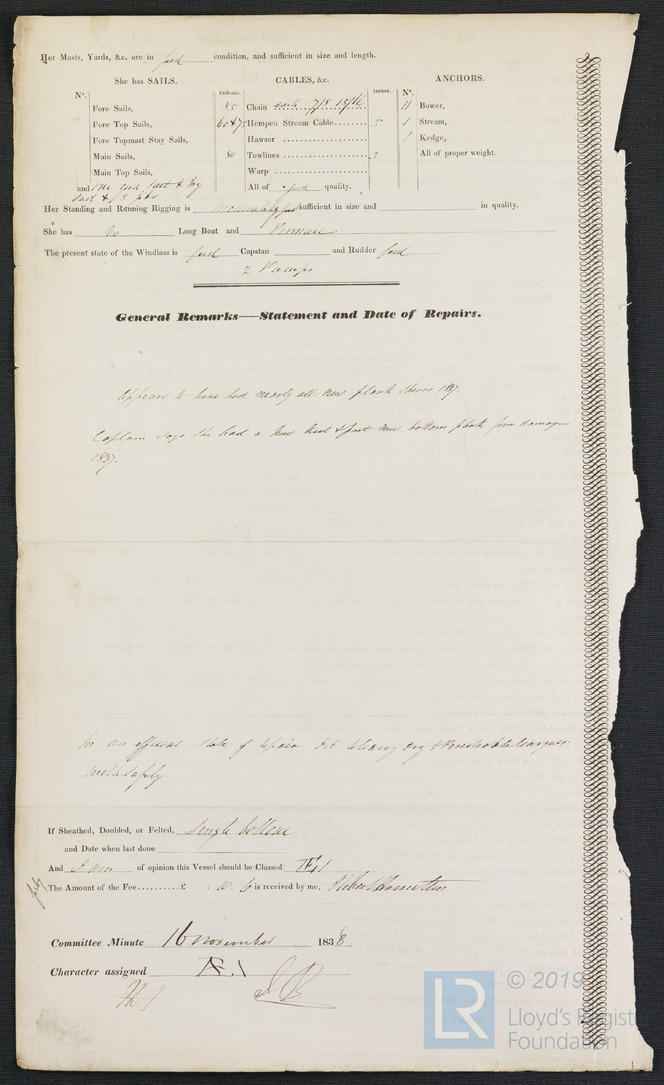 Her Masts, Yards, &c. are in good condition, and sufficient in size and length.
She has SAILS. CABLES, &c. ANCHORS.
Nº. Fathoms. Inches. Nº.
Fore Sails, Chain 7/8 15/16 11 Bower,
Fore Top Sails, 60 & 75 Hempen Stream Cable 5 1 Stream,
Fore Topmast Stay Sails, Hawser 1 Kedge,
Main Sails, 80 Towlines 3 All of proper weight.
Main Top Sails, Warp
and All of good quality.
Her Standing and Running Rigging is sufficient in size and in quality.
She has no Long Boat and Pinnace
The present state of the Windlass is good Capstan and Rudder good
2 Pumps
General Remarks—Statement and Date of Repairs.
Appears to have had nearly all new plank 1837.
Captain says she had a new keel & new bottom plank from damage
1837.
In an efficient state of repair dry & Perishable Cargoes
with safety
If Sheathed, Doubled, or Felted, Single bottom
and Date when last done
And I am of opinion this Vessel should be Classed Æ 1
The Amount of the Fee..........£ : 10 : 6 is received by me,
Committee Minute 16 November 1838
Character assigned Æ. 1
LR
© 2019
Lloyd's Regist
Foundation